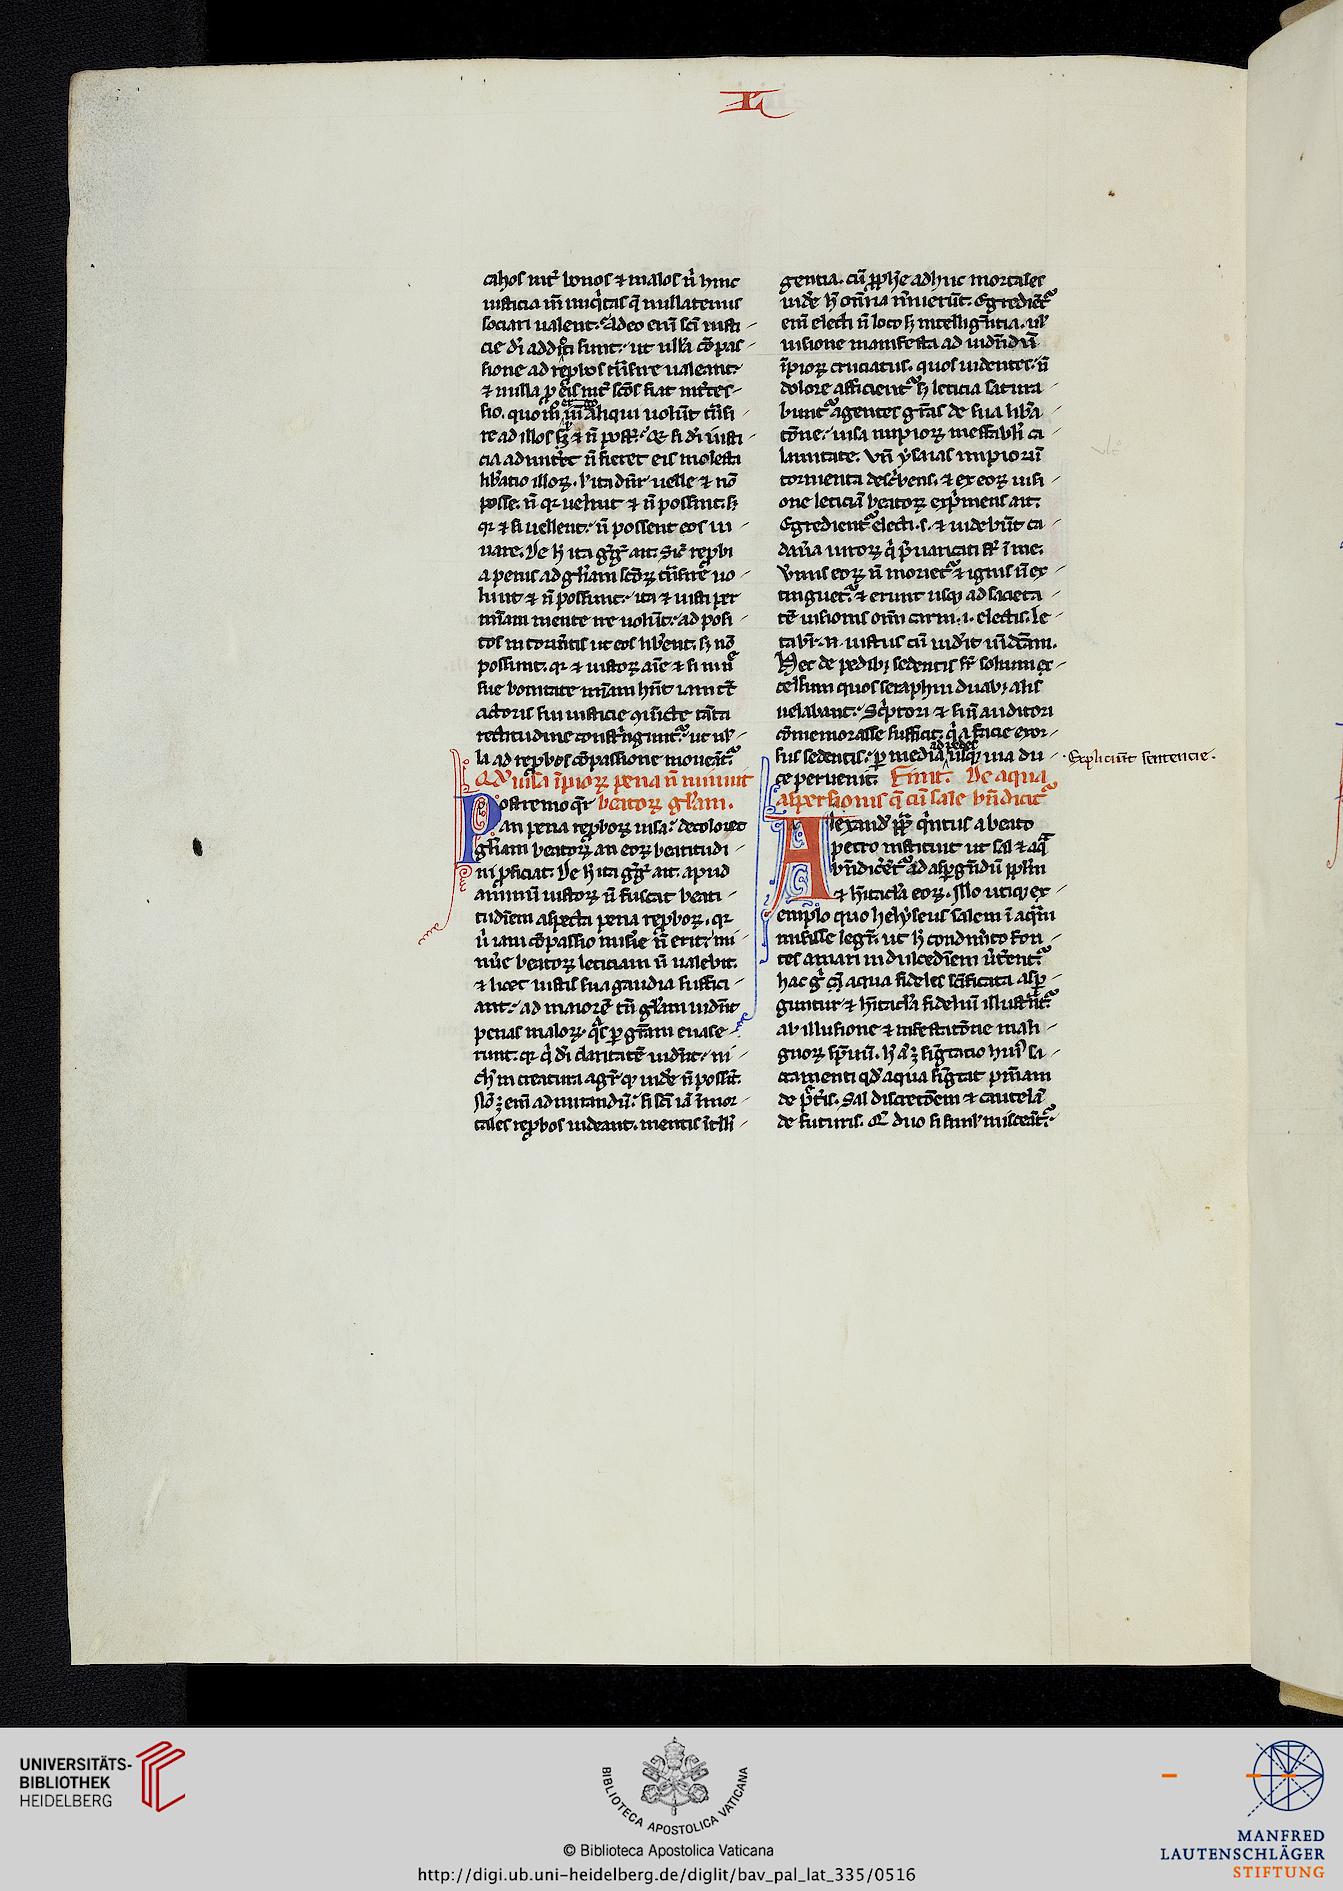 L
cahos int̾ bonos ⁊ malos ñ hinc
iusticia iñ iniq̾tas q̄ nullatenus
sociari ualent. Adeo eni̅ sc̅i iusti
cie di̅ addicti sunt. ut ulla cōpas
sione ad rep̱bos tn̅sire ualeant
⁊ nulla ꝑ eis int̾ sc̅os fiat int̾ces
sio. quom̅ aliqui uolūt tn̅si
re ad illos ⁊ ñ poss̅. si di̅ iusti
cia ñ fieret eis molesta
lib̾atio illoꝝ. l̾ ita dn̅r uelle ⁊ nō
posse. ñ qꝛ uelint ⁊ ñ possint. sꝫ
qꝛ ⁊ si uellent. ñ possent eos iu
uare. De h̾ ita g̾g̾ ait. Sic̾ rep̱bi
a penis ad gl̅iam sc̅oꝝ tn̅sire uo
lunt ⁊ ñ possunt. ita ⁊ iusti per
mi̅am mente ire uolūt. ad posi
tos in torm̅tis ut eos lib̾ent. sꝫ nō
possunt. qꝛ ⁊ iustoꝝ aī̅e ⁊ si in n̅e
sue bonitate mi̅am hn̅t iam t̅n̅
actoris sui iusticie ꝯiu̅cte ta̅ta
rectitudine constri̅gunt᷑. ut ul
la ad rep̱bos cōpassione moueāt᷑
Qd̾ uisa īpioꝝ pena ñ minuit
Postremo q̅r beatoꝝ gl̅iam.
an pena rep̱boꝝ uisa. decoloret
gl̅iam beatoꝝ an eoꝝ beatitudi
ni ꝓficiat. De h̾ ita g̾g̾ ait. apud
animū iustoꝝ ñ fuscat beati
tudinem aspecta pena rep̱boꝝ. qꝛ
u̾ iam cōpassio mis̾ie ñ erit. mi
nu̾e beatoꝝ leticiam ñ ualebit.
⁊ licet iustis sua gaudia suffici
ant. ad maiorē tn̅ gl̅iam uidn̅t
penas maloꝝ. q̾s ꝑ gr̅am euase
runt. qꝛ q̾ di̅ claritatē uidn̅t. ni
ch̾ in creatura agit᷑ qđ uide̾ ñ possīt.
Nō ꝫ eni̅ admirandū. si sc̅i iā īmor
tales rep̱bos uideant. mentis ītelli
gentia. cū ꝓphe̅ adhuc mortales
uide̾ h̾ om̅ia m̾uerūt. Egredient᷑
eni̅ electi ñ loco sꝫ intellign̅tia. ul̾
uisione manifesta ad uidn̅dū
īpioꝝ cruciatus. quos uidentes. ñ
dolore afficient᷑ sꝫ leticia satura
bunt᷑ agentes gr̅as de sua lib̾a
tōne. uisa impioꝝ ineffabili ca
lamitate. Vn̅ ysaias impiorū
tormenta desc̾bens. ⁊ ex eoꝝ uisi
one leticiā beatoꝝ exp̾mens ait.
Egredient᷑ electi. s. ⁊ uidebūt ca
dau̾a uiroꝝ q̾ p̾uaricati st̅ ī me.
Vermis eoꝝ ñ moriet᷑ ⁊ ignis ñ ex
tinguet᷑. ⁊ erunt usqꝫ ad sacieta
tē uisionis om̅i carni. i. electis. le
tabit᷑. n. iustus cū uid̾it uindc̅am.
Hec de pedibꝫ sedentis sr̅ solium ex
celsum quos seraphin duabꝫ alis
uelabant. Sc̾ptori ⁊ si ñ auditori
cōmemorasse sufficit. q̾ a facie exor
sus sedentis. ꝑ media ad pedes usqꝫ uia du
ce peruenit. Finit. De aqua
aspersionis q̄ cū sale bn̅dicit᷑
Alexand̾ pp̅ q̾ntus a beato
petro instituit ut sal ⁊ aq̄
bn̅dice̾t᷑ ad aspg̾ndū ppl̅m
⁊ h̾itacl̅a eoꝝ. Illo utiqꝫ ex
emplo quo helyseus salem ī aquā
misisse legit᷑. ut h̾ condim̅to fon
tes amari in dulcedinem u̾terent᷑.
hac g̾ aqua fideles sc̅ificata asp̱
guntur ⁊ h̾itacl̅a fideliū illustn̅t᷑
ab illusione ⁊ infestatōne mali
gnoꝝ spirituū. h̾ aꝫ sig̅tatio hui̾ sa
cramenti qd̾ aqua sig̅tat pn̅iam
de p̾t̾itis. Sal discretōem ⁊ cautelā
de futuris. Et duo si simul misceāt᷑.
Expliciūt sentencie.
UNIVERSITÄTS-
BIBLIOTHEK
HEIDELBERG
BIBLIOTECA APOSTOLICA VATICANA
© Biblioteca Apostolica Vaticana
http://digi.ub.uni-heidelberg.de/diglit/bav_pal_lat_335/0516
MANFRED
LAUTENSCHLÄGER
STIFTUNG